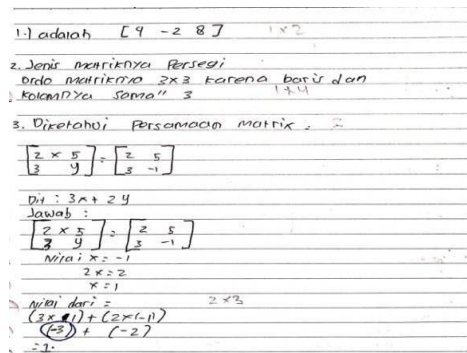 1.) adalah [9 -2 8] 1x2
2. Jenis matriknya Persegi
Ordo matriknya 3x3 karena baris dan
kolomnya sama" 3
3. Diketahui Persamaan matrix.
[2x 5
3 y] = [2 5
3 -1]
Dit : 3x + 2y
Jawab :
[2x 5
3 y] = [2 5
3 -1]
Nilai x = -1
2x = 2
x = 1
Nilai dari = 2x3
(3x 1) + (2x(-1))
(-3) + (-2)
= 1.